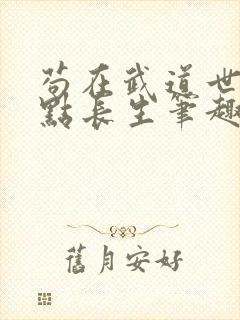 苟在武道世
點長生筆趣
舊月安好